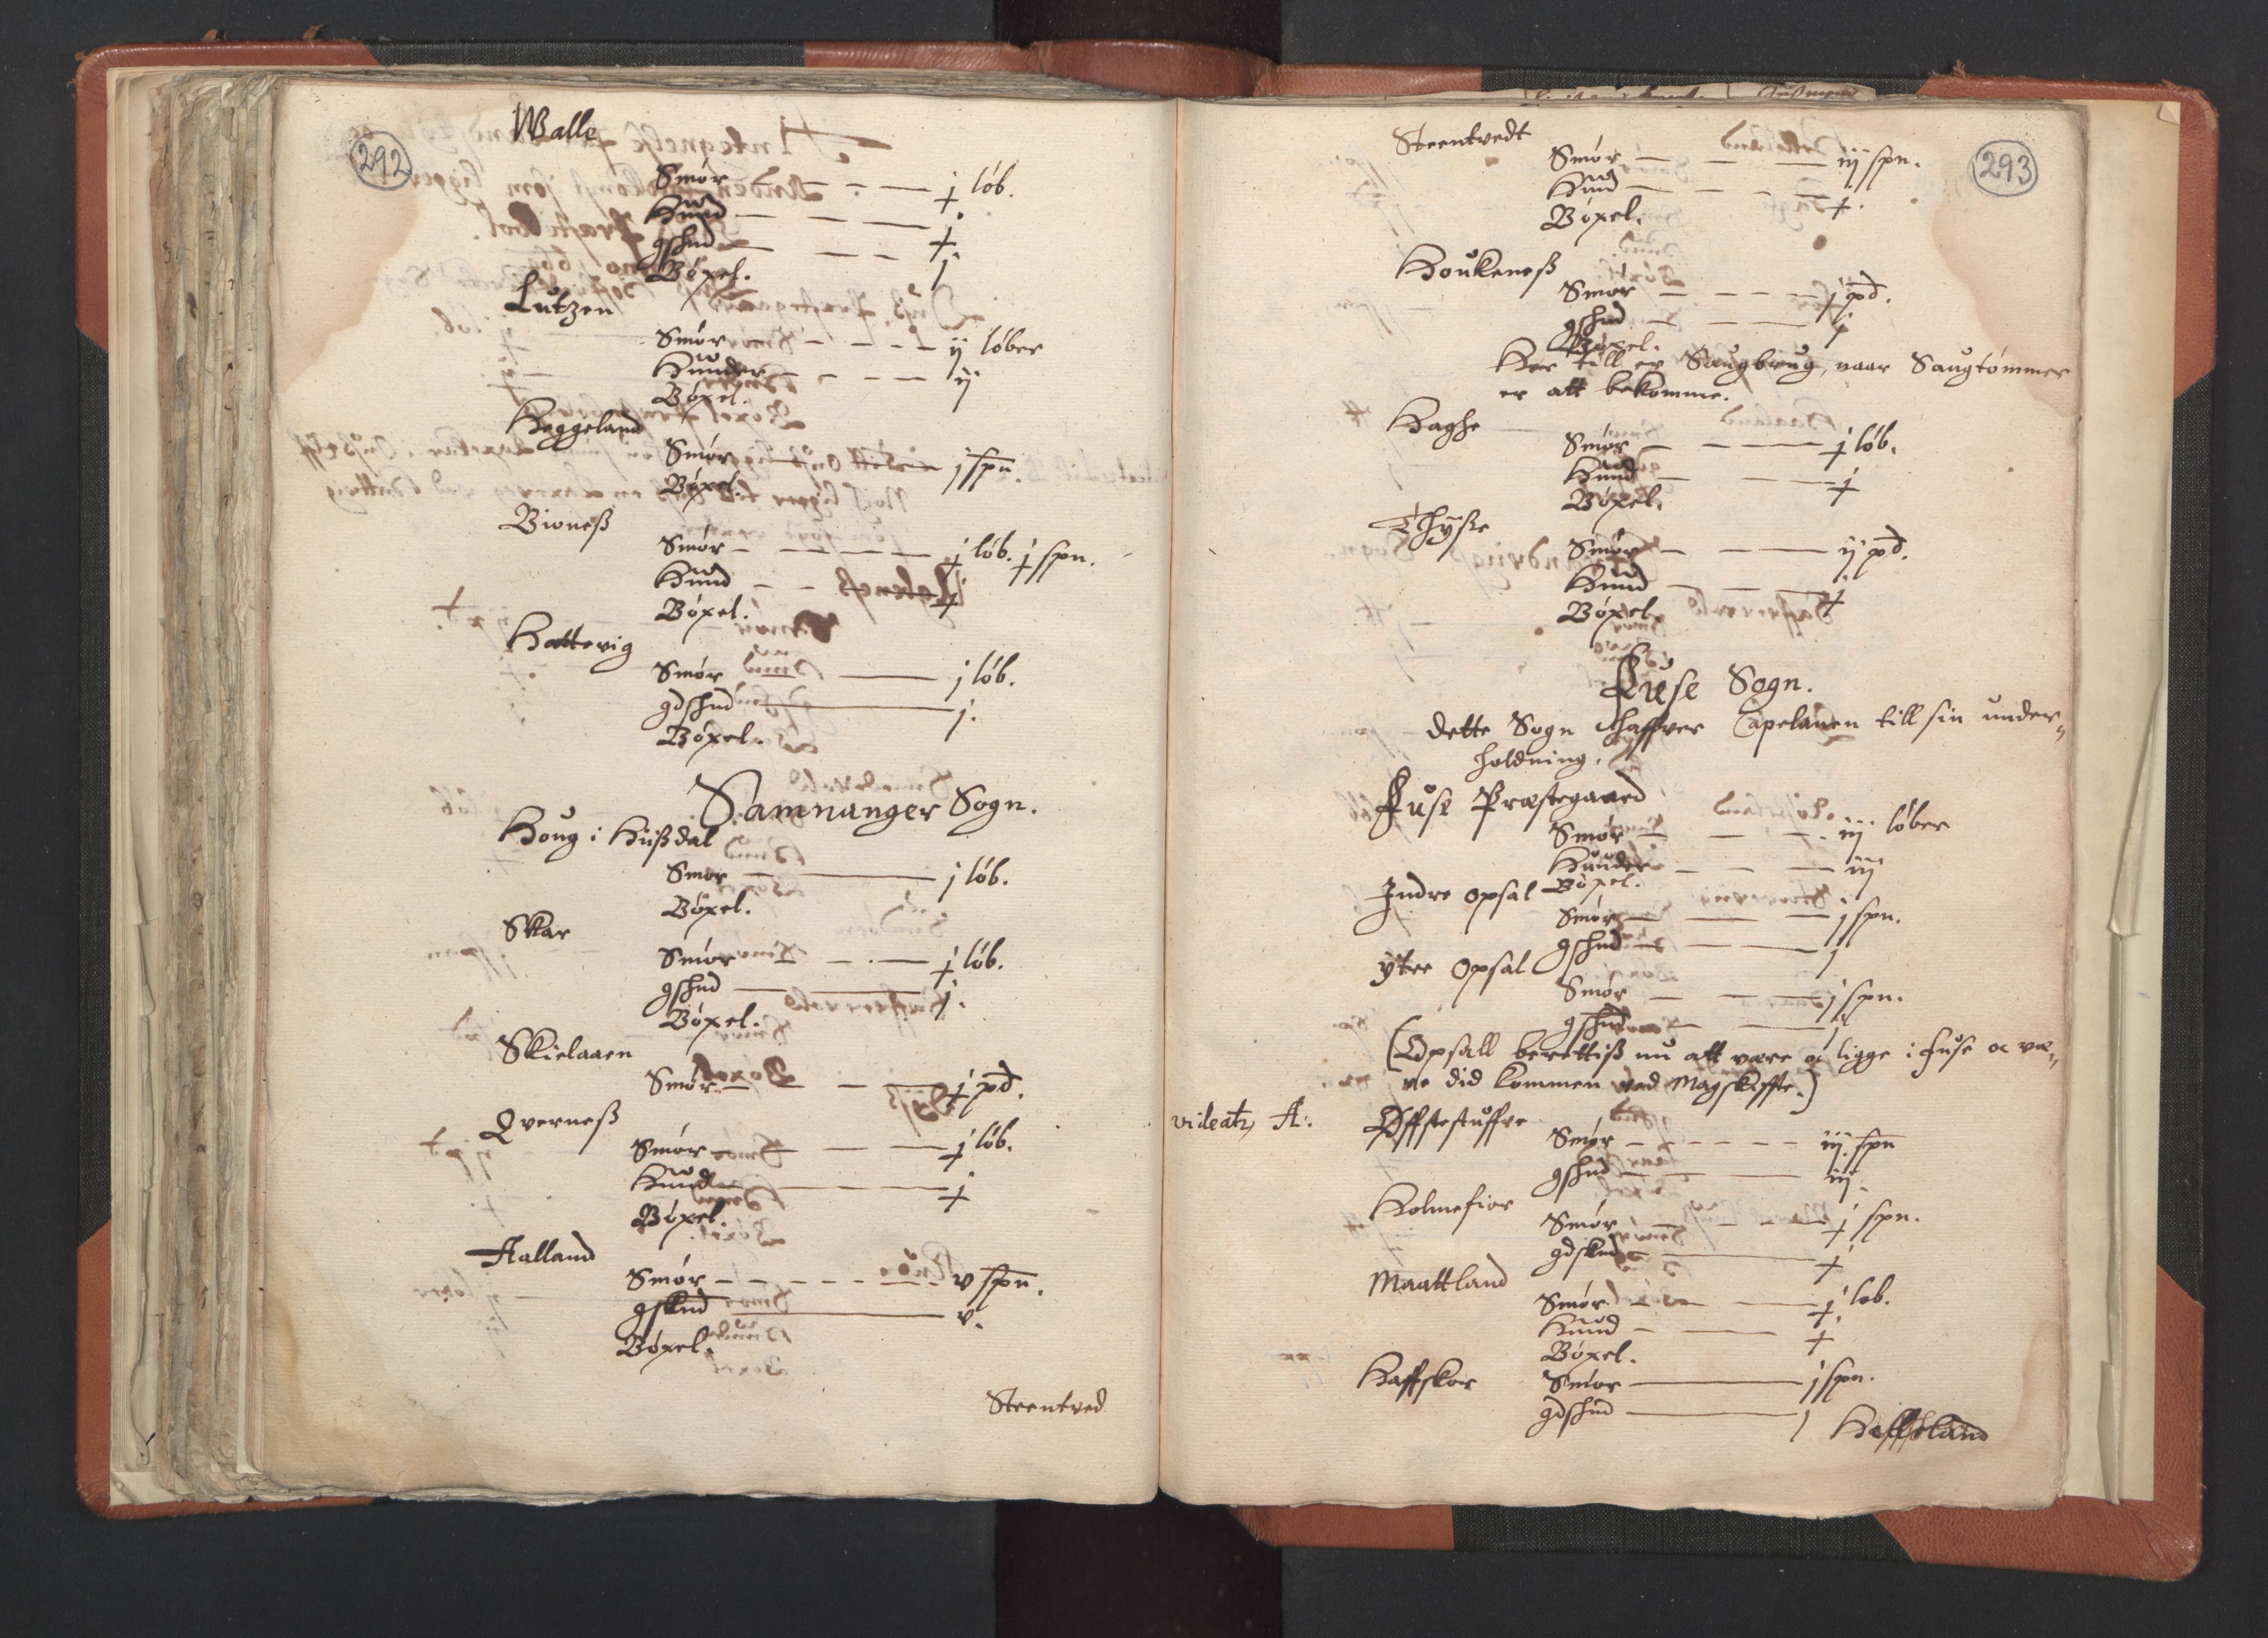 292
Walle
Smør — — — j løb.
Huud — — — j
gshud — — — j
Bøxel.
Lutzen
Smør — — — ij løber
Huuder — — — ij
Bøxel.
Heggeland
Smør — — — j spn.
Bøxel.
Bioneß
Smør — — — j løb. j spn.
Huud — —
Bøxel.
Hattevig
Smør — — j løb.
gdshud — — j.
Bøxel.
Samnanger Sogn.
Houg i Hüßdal
Smør — — j løb.
Bøxel.
Skar
Smør — — j løb.
gshud — — j.
Bøxel.
Skielaaen
Smør — — j pd.
Qverneß
Smør — — j løb.
Huud — — j
Bøxel.
Aalland
Smør — — — v spn.
gskud — — v.
Bøxel.
Steentved
293
Steentvedt
Smør — — iij spn.
Huud — —
Bøxel.
Houkeneß
Smør — — j pd.
gshud — — j
Bøxel.
Her till er Saugbrug, naar Saugtømmer
er att bekomme.
Haghe
Smør — — j løb.
Huud — — j
Bøxel.
Thyße
Smør — — ij pd.
Huud — —
Bøxel.
Fuse Sogn.
dette Sogn haffver Capelanen till sin under„
holdning.
Fuse Præstegaard
Smør — — iij løber
Huuder — — iij
Bøxel.
Indre Opsal
Smør — — j spn.
gshud — — j
ytre Opsal
Smør — — j spn.
gshud — — j
(Opsall berettiß nu att være oc ligge i Fuse oc væ„
re did kommen ved Magskiffte.)
videatr, A:. Øffstestuffve
Smør — — iij spn
gshud — — iij
Holmefior
Smør — — j spn.
gdskud — —
Maattland
Smør — — j løb.
Huud — —
Bøxel.
Haffskor
Smør — — j spn.
gdshud — — j